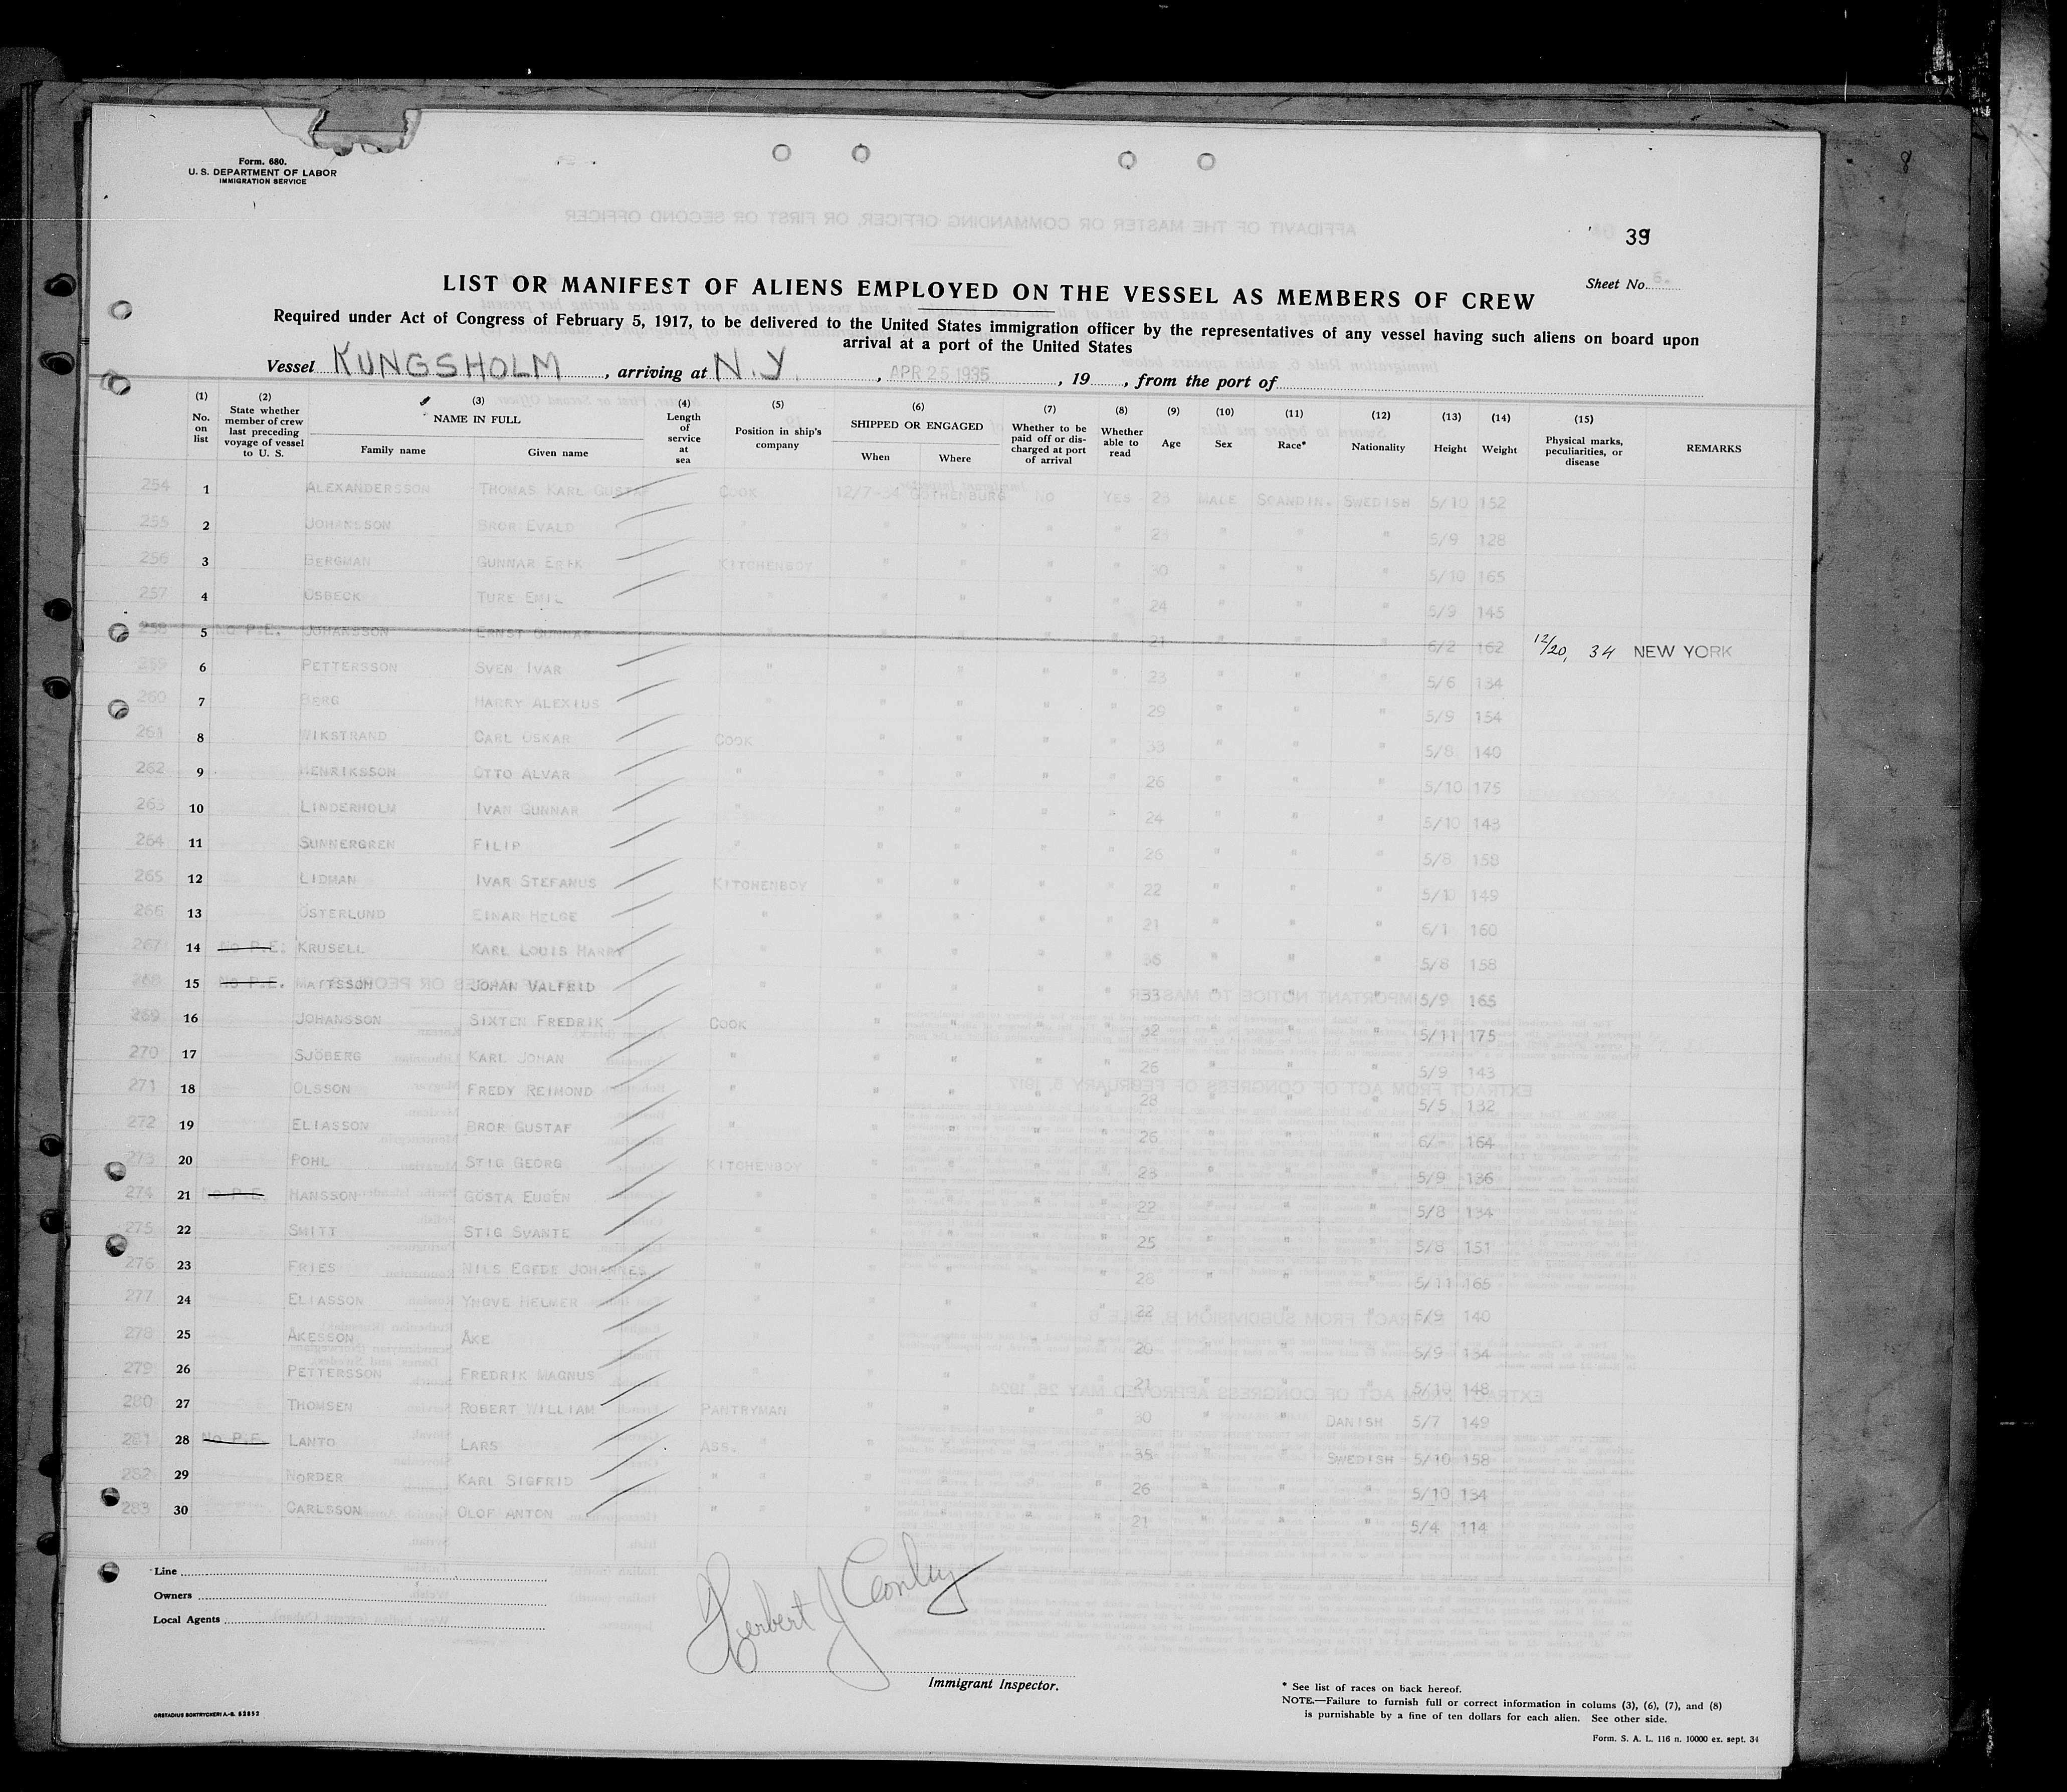 Form. 680.
U. S. DEPARTMENT OF LABOR
IMMIGRATION SERVICE
39
Sheet No. 5.
LIST OR MANIFEST OF ALIENS EMPLOYED ON THE VESSEL AS MEMBERS OF CREW
Required under Act of Congress of February 5, 1917, to be delivered to the United States immigration officer by the representatives of any vessel having such aliens on board upon
arrival at a port of the United States
Vessel KUNGSHOLM, arriving at N.Y., APR 25 1935, 19, from the port of
(1) No. on list (2) State whether member of crew last preceding voyage of vessel to U. S. (3) NAME IN FULL Family name Given name (4) Length of service at sea (5) Position in ship's company (6) SHIPPED OR ENGAGED When Where (7) Whether to be paid off or discharged at port of arrival (8) Whether able to read (9) Age (10) Sex (11) Race* (12) Nationality (13) Height (14) Weight (15) Physical marks, peculiarities, or disease REMARKS
254 1 ALEXANDERSSON THOMAS KARL GUSTAF COOK 12/7-34 GOTHENBURG NO YES 28 MALE SCANDIN. SWEDISH 5/10 152
255 2 JOHANSSON BROR EVALD " " " " " " " " 5/9 128
256 3 BERGMAN GUNNAR ERIK KITCHENBOY " " " " 30 " " " 5/10 165
257 4 OSBECK TURE EMIL " " " " " 24 " " " 5/9 145
258 5 NO P.E. JOHANSSON ERNST GUNNAR " " " " " 21 " " " 6/2 162 12/20, 34 NEW YORK
259 6 PETTERSSON SVEN IVAR " " " " " 23 " " " 5/6 134
260 7 BERG HARRY ALEXIUS " " " " " 29 " " " 5/9 154
261 8 WIKSTRAND CARL OSKAR COOK " " " " 33 " " " 5/8 140
262 9 HENRIKSSON OTTO ALVAR " " " " " 26 " " " 5/10 175
263 10 LINDERHOLM IVAN GUNNAR " " " " " 24 " " " 5/10 143
264 11 SUNNERGREN FILIP " " " " " 26 " " " 5/8 158
265 12 LIDMAN IVAR STEFANUS KITCHENBOY " " " " 22 " " " 5/10 149
266 13 ÖSTERLUND EINAR HELGE " " " " " 21 " " " 6/1 160
267 14 NO P.E. KRUSELL KARL LOUIS HARRY " " " " " 36 " " " 5/8 158
268 15 NO P.E. MATTSSON JOHAN VALFRID " " " " " 33 " " " 5/9 165
269 16 JOHANSSON SIXTEN FREDRIK COOK " " " " 32 " " " 5/11 175
270 17 SJÖBERG KARL JOHAN " " " " " 26 " " " 5/9 143
271 18 OLSSON FREDY REIMOND " " " " " 28 " " " 5/5 132
272 19 ELIASSON BROR GUSTAF " " " " " 26 " " " 6/- 164
273 20 POHL STIG GEORG KITCHENBOY " " " " 23 " " " 5/9 136
274 21 NO P.E. HANSSON GÖSTA EUGÉN " " " " " 22 " " " 5/8 134
275 22 SMITT STIG SVANTE " " " " " 25 " " " 5/8 151
276 23 FRIES NILS EGEDE JOHANNES " " " " " 28 " " " 5/11 165
277 24 ELIASSON YNGVE HELMER " " " " " 22 " " " 5/9 140
278 25 ÅKESSON ÅKE " " " " " 20 " " " 5/9 134
279 26 PETTERSSON FREDRIK MAGNUS " " " " " 21 " " " 5/10 148
280 27 THOMSEN ROBERT WILLIAM PANTRYMAN " " " " 30 " " DANISH 5/7 149
281 28 NO P.E. LANTO LARS ASS. " " " " " 35 " " SWEDISH 5/10 158
282 29 NORDER KARL SIGFRID " " " " " " 26 " " " 5/10 134
283 30 CARLSSON OLOF ANTON " " " " " " 21 " " " 5/4 114
Line
Owners
Local Agents
Herbert J Conley
Immigrant Inspector.
* See list of races on back hereof.
NOTE.—Failure to furnish full or correct information in colums (3), (6), (7), and (8)
is purnishable by a fine of ten dollars for each alien. See other side.
ORSTADIUS BOKTRYCKERI A.-B. 52852
Form. S. A. L. 116 n. 10000 ex. sept. 34